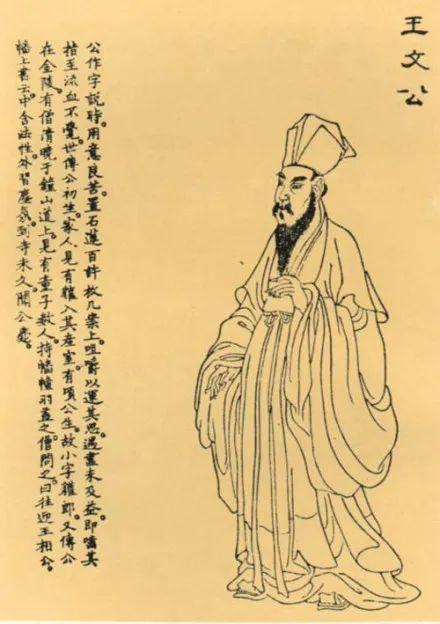 王文公
公作字說時。用意良苦。置石蓮百許枚几案上。咀嚼以運其思。遇盡未及益。即嚙其
指至流血不覺。世傳公初生。家人見有貛入其產室。有頃公生。故小字貛郎。又傳公
在金陵。有僧清曉于鐘山道上見有童子數人。持幡幢羽蓋之僧問之。曰往迎王相公。
幡上書云。中含法性。外習塵氛。到寺未久。聞公薨。